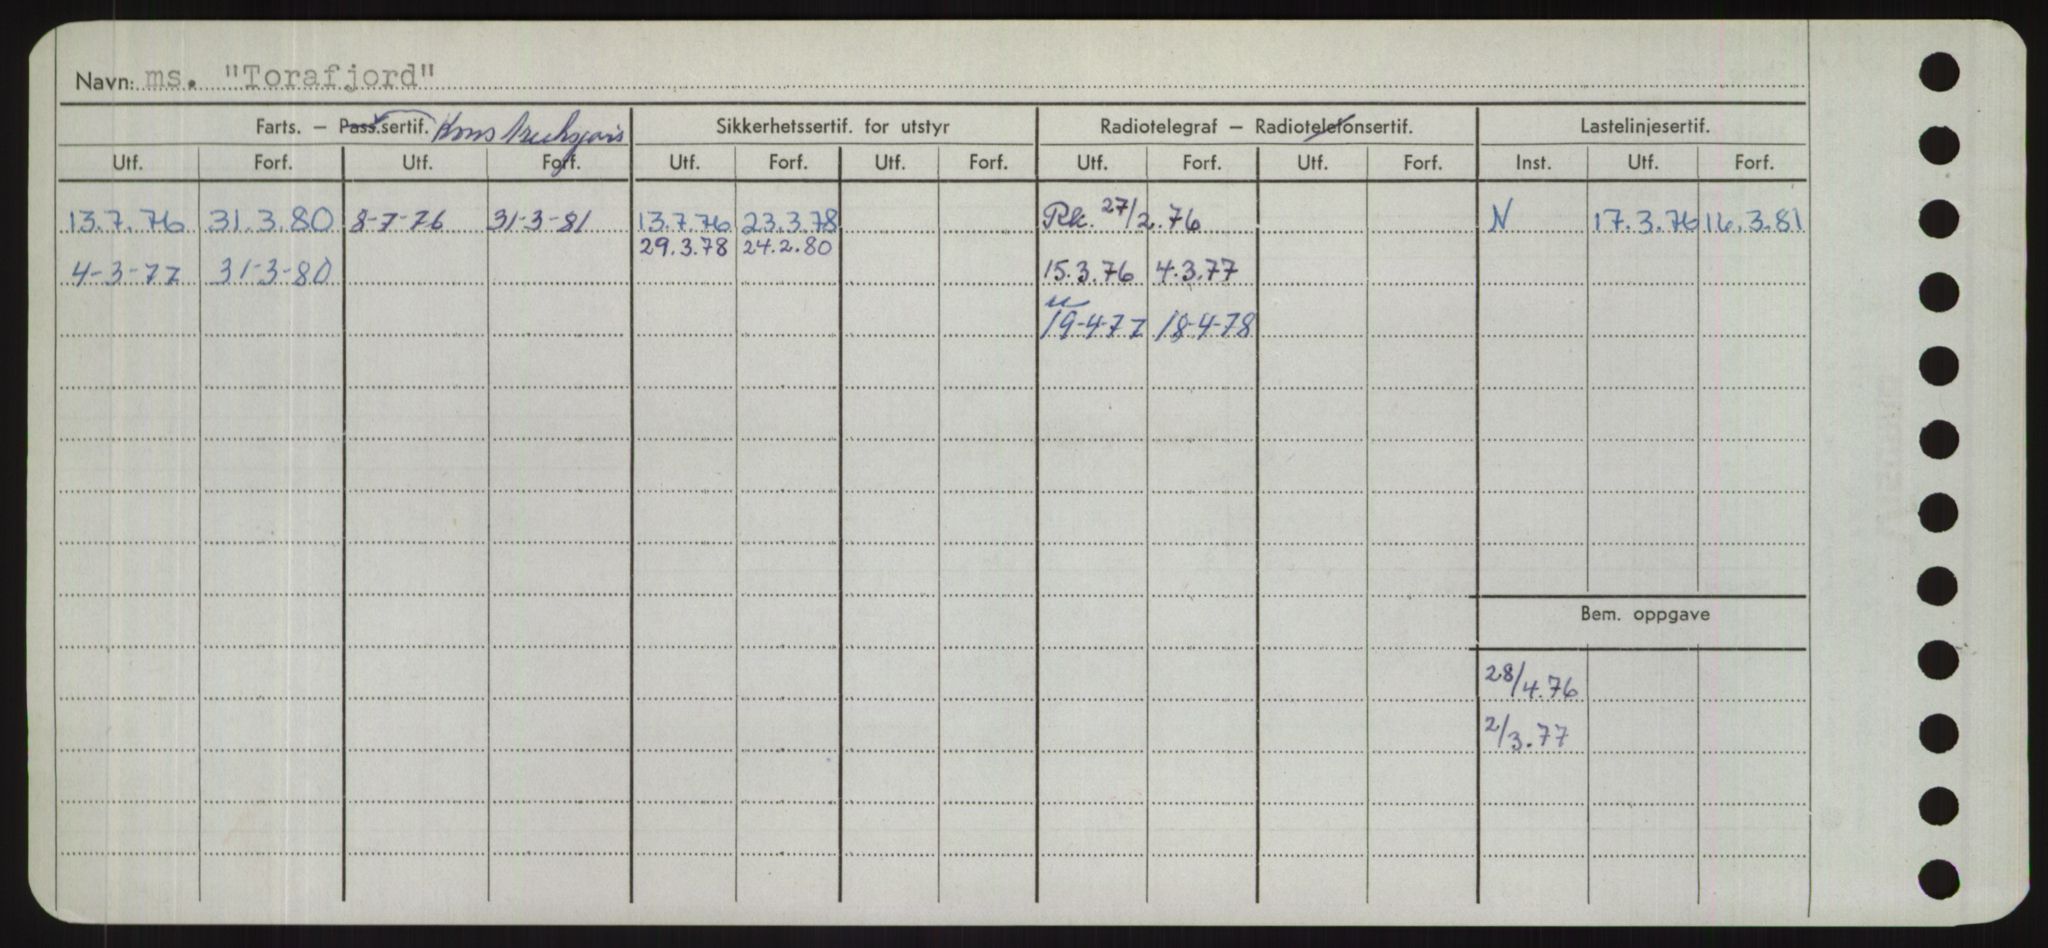 Navn: ms. "Torafjord"
Farts. – Pass.sertif. Konstruksjons Sikkerhetssertif. for utstyr Radiotelegraf – Radiotelefonsertif. Lastelinjesertif.
Utf. Forf. Utf. Forf. Utf. Forf. Utf. Forf. Utf. Forf. Utf. Forf. Inst. Utf. Forf.
13.7.76 31.3.80 8-7-76 31-3-81 13.7.76 23.3.78 Rk. 27/2.76 N 17.3.76 16.3.81
29.3.78 24.2.80
4-3-77 31-3-80 15.3.76 4.3.77
19-4-77 18-4-78
Bem. oppgave
28/4.76
2/3.77